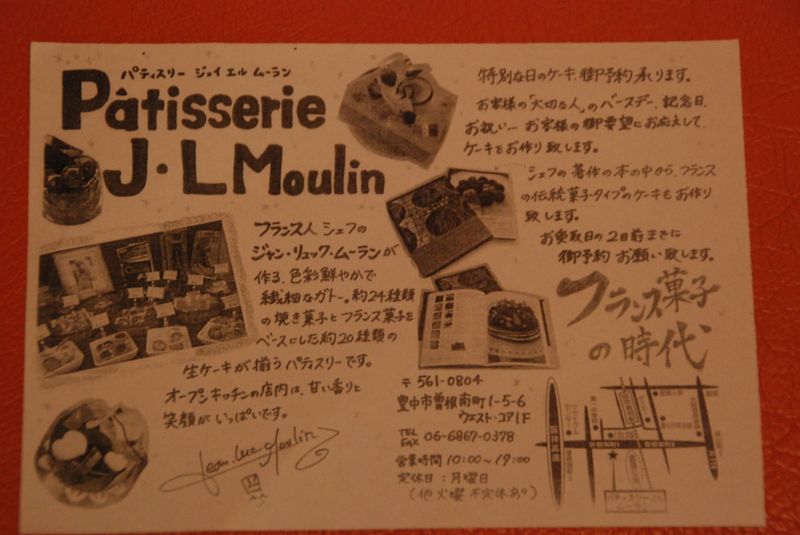 パティスリー ジェイ エル ムーラン
Pâtisserie
J・L Moulin
フランス人 シェフの
ジャン・リュック・ムーランが
作る、色彩鮮やかで
繊細なガトー。約24種類
の焼き菓子とフランス菓子を
ベースにした約20種類の
生ケーキが揃うパティスリーです。
オープンキッチンの店内は、甘い香りと
笑顔がいっぱいです。
Jean-Luc Moulin
特別な日のケーキ、御予約承ります。
お客様の「大切な人」のバースデー、記念日、
お祝い… お客様の御要望にお応えして、
ケーキをお作り致します。
シェフの著作の本の中から、フランス
の伝統菓子タイプのケーキもお作り
致します。
お受取日の2日前までに
御予約お願い致します。
フランス菓子
の時代
〒561-0804
豊中市曽根南町1-5-6
ウエスト・コア1F
TEL
FAX 06-6867-0378
営業時間 10:00~19:00
定休日:月曜日
(他火曜不定休あり)
パティスリーJ.L
ムーラン